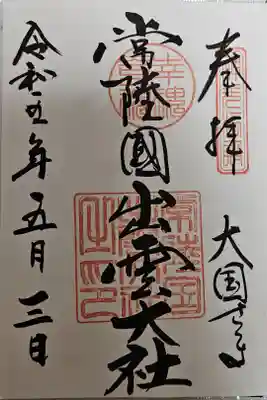 奉拝
大国さま
常陸國出雲大社
令和五年五月三日